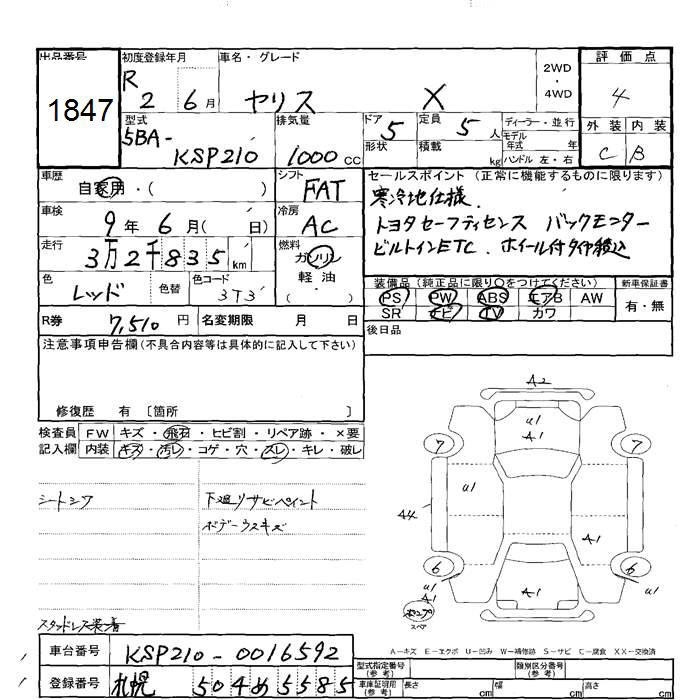 出品番号 初度登録年月 車名・グレード 評価点
1847 R 2 6月 ヤリス X 2WD・4WD 4
型式 排気量 ドア 5 定員 5人 ディーラー・並行 外装 内装
5BA-KSP210 1000cc 形状 積載 kg モデル年式 年 ハンドル 左・右 C B
車歴 自家用・( ) シフト FAT セールスポイント (正常に機能するものに限ります)
寒冷地仕様
車検 9年 6月( 日) 冷房 AC トヨタセーフティセンス バックモニター
走行 3万2千835km 燃料 ガソリン ビルトインETC. ホイール付タイヤ積込
軽・油
( )
色 レッド 色替 色コード 3T3 装備品 (純正品に限り○をつけてください) 新車保証書
PS PW ABS エアB AW 有・無
SR ナビ TV カワ
R券 7,510円 名変期限 月 日 後日品
注意事項申告欄 (不具合内容等は具体的に記入して下さい)
修復歴 有 〔箇所 〕
検査員 FW キズ・飛石・ヒビ割・リペア跡・×要
記入欄 内装 キズ・汚レ・コゲ・穴・スレ・キレ・破レ
A2
u1
A1
7 7
u1
44
A1
6 6
u1 u1
A1 A1 A1
スペア
シートシワ 下廻リサビペイント
ボデーウスキズ
スタッドレス装着
A-キズ E-エクボ U-凹み W-補修跡 S-サビ C-腐食 XX-交換済
車台番号 KSP210-0016592 型式指定番号(参考) 類別区分番号(参考)
登録番号 札幌 504め5585 車庫証明用(参考) 長さ cm 幅 cm 高さ cm